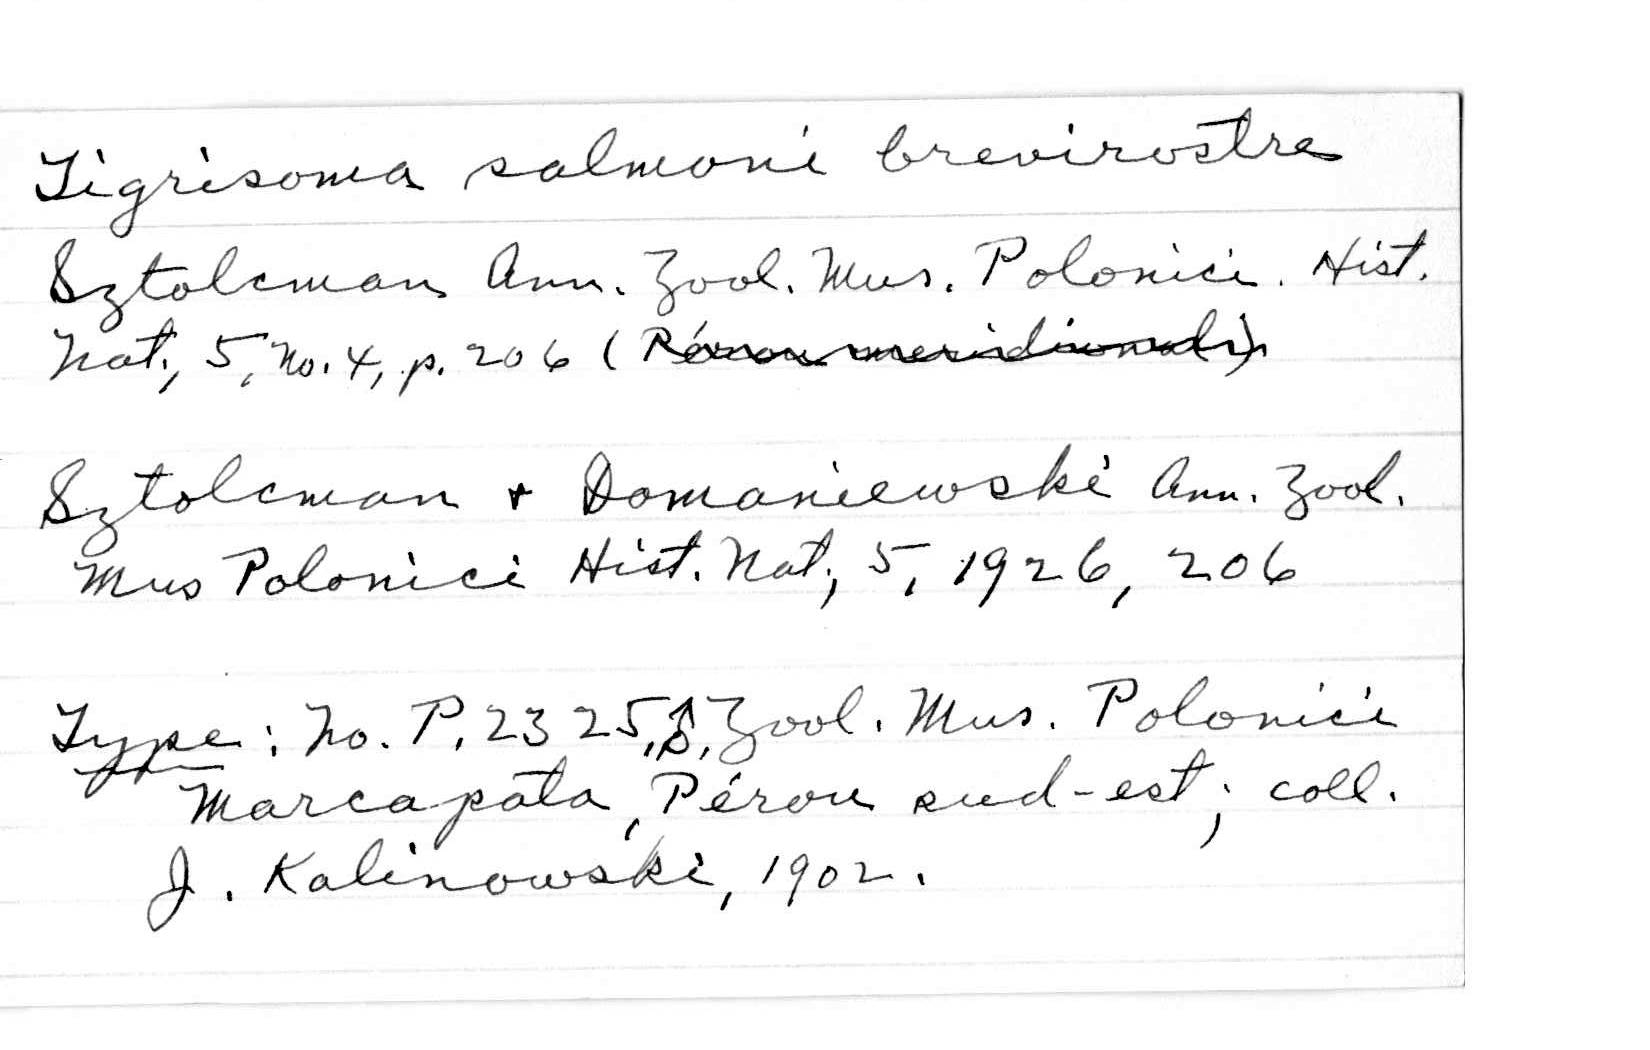 Tigrisoma salmoni brevirostre
Sztolcman Ann. Zool. Mus. Polonici. Hist.
Nat., 5, No. 4, p. 206 (Pérou meridional)
Sztolcman + Domaniewski Ann. Zool.
Mus Polonici Hist. Nat., 5, 1926, 206
Type: No. P. 2325, ♂, Zool. Mus. Polonici
Marcapata, Pérou sud-est; coll.
J. Kalinowski, 1902.